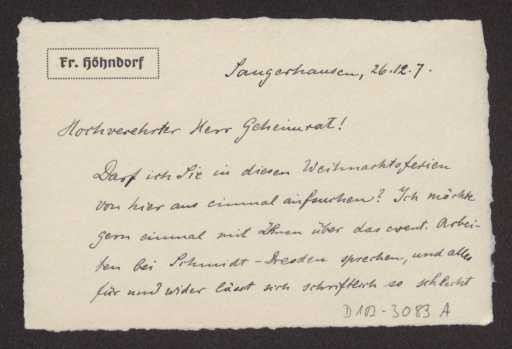 Fr. Höhndorf
Sangerhausen, 26.12.7.
Hochverehrter Herr Geheimrat!
Darf ich Sie in diesen Weihnachtsferien
von hier aus einmal aufsuchen? Ich möchte
gern einmal mit Ihnen über das event. Arbei-
ten bei Schmidt-Dresden sprechen, und alles
für und wider lässt sich schriftlich so schlecht
D 102-3083 A